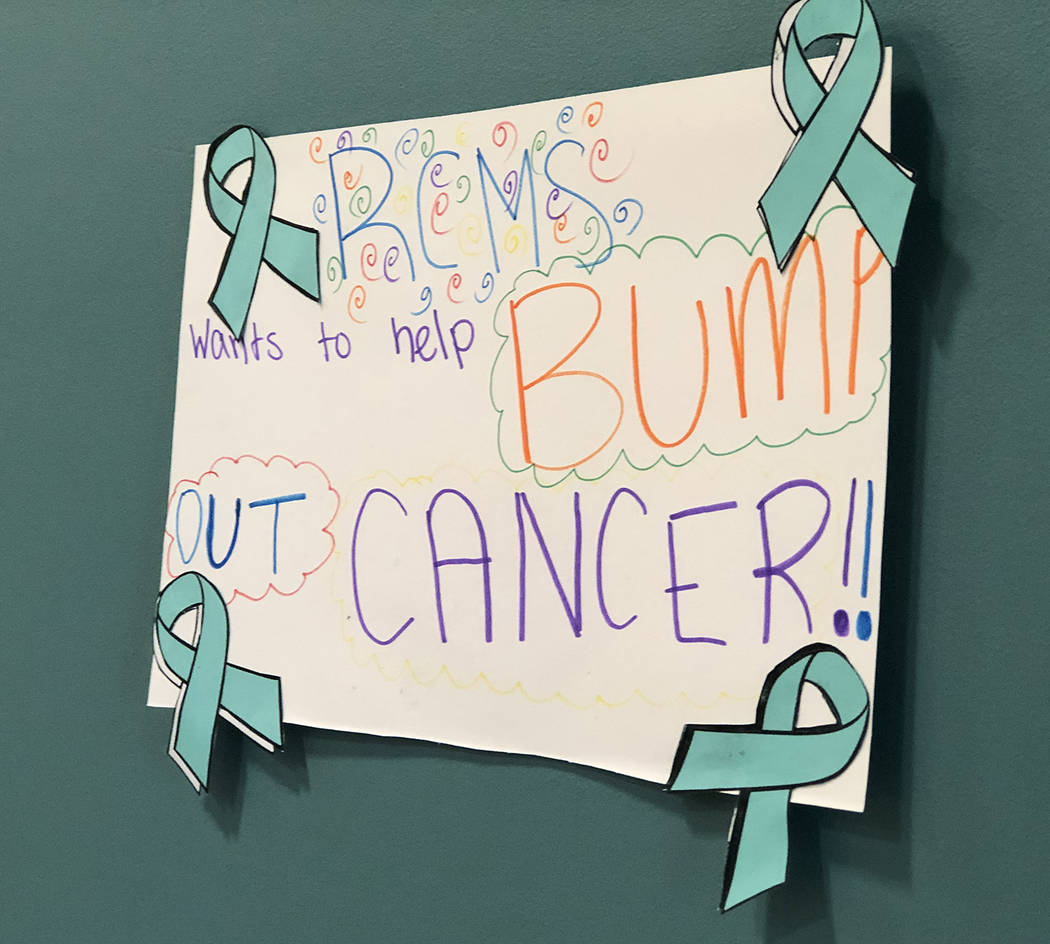 RCMS
Wants to help BUMP
OUT CANCER!!